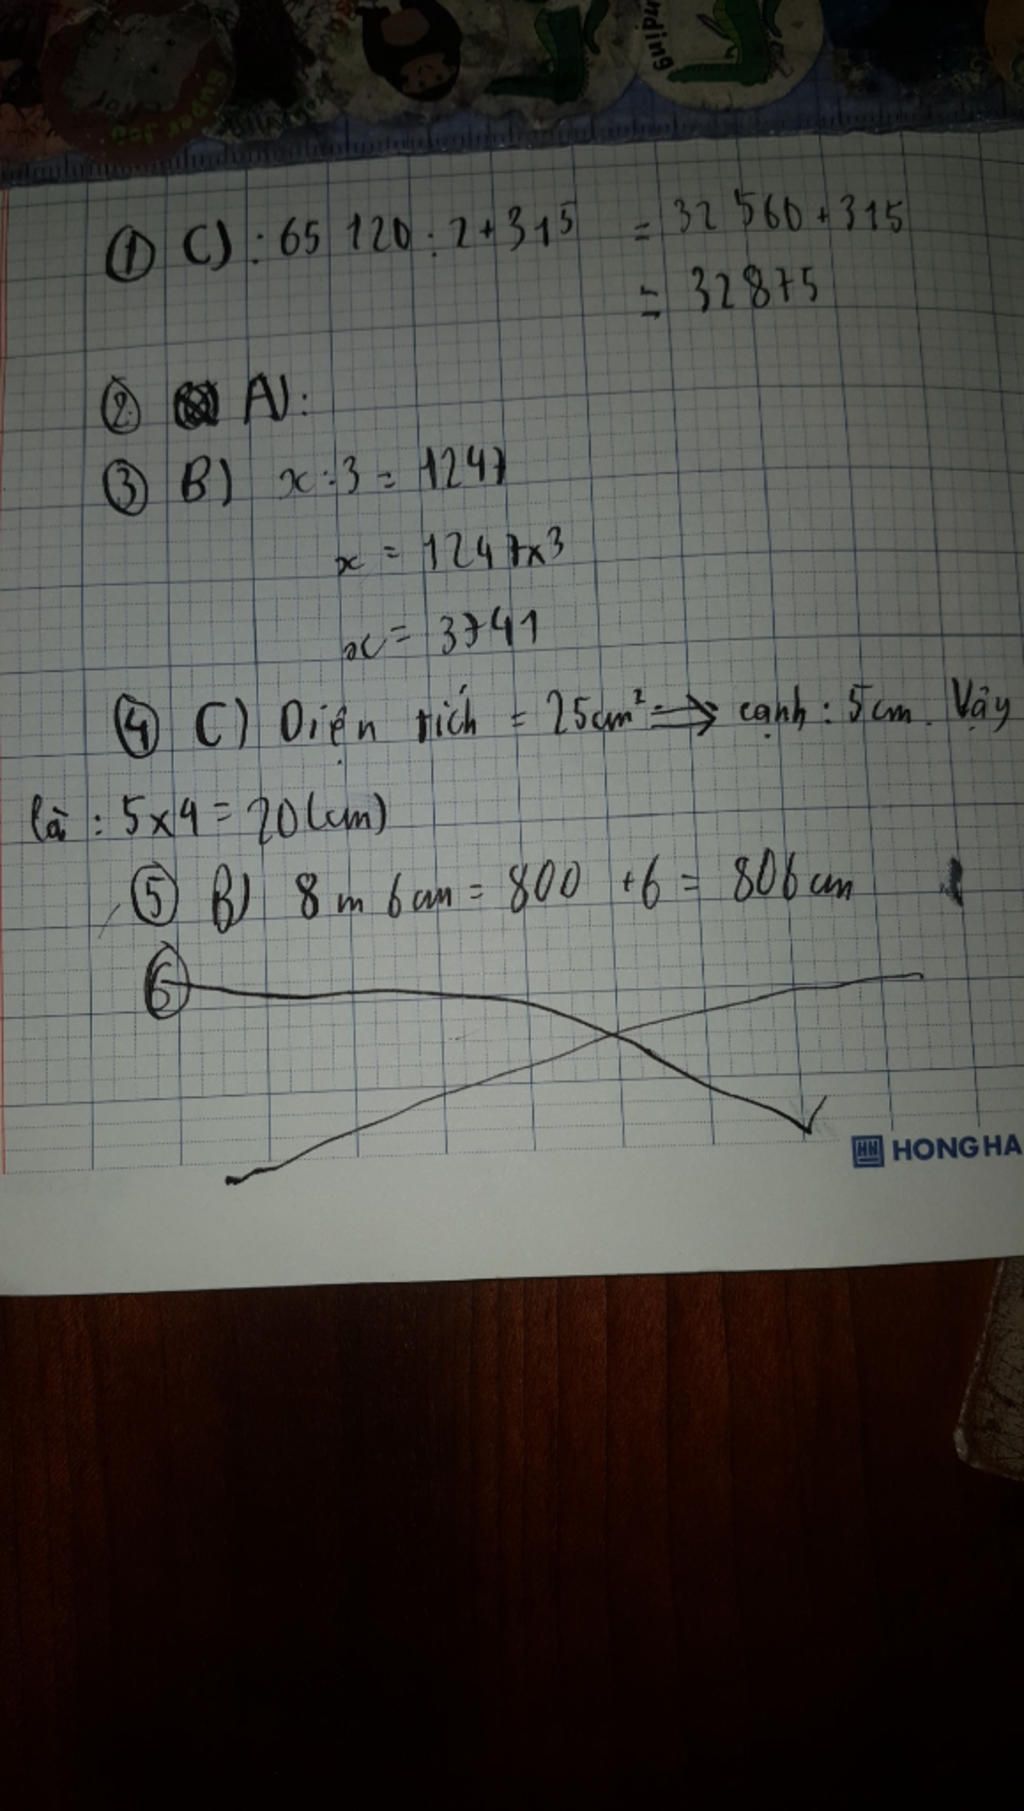 guiding
Super
① C) : 65 120 : 2 + 315 = 32 560 + 315
= 32875
② A) :
③ B) x : 3 = 1247
x = 1247 x 3
x = 3741
④ C) Diện tích = 25cm² => cạnh : 5cm. Vậy
là : 5 x 4 = 20 (cm)
⑤ B) 8 m 6 cm = 800 + 6 = 806 cm
⑥
HH HONG HA